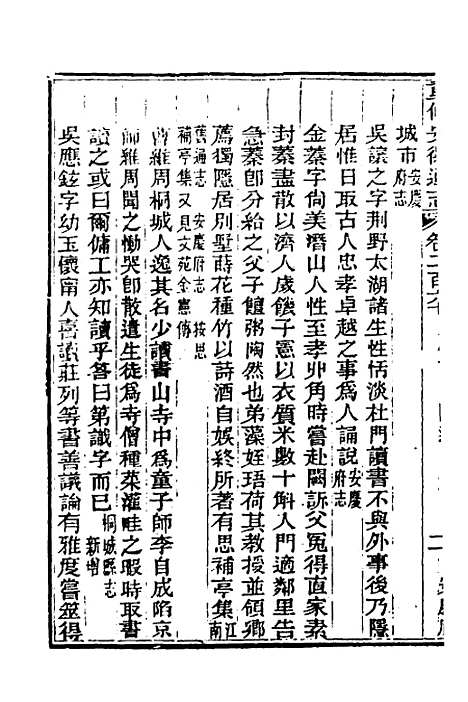 城市安慶府志
吳讓之字荆野太湖諸生性恬淡杜門讀書不與外事後乃隱
居惟日取古人忠孝卓越之事爲人誦說安慶府志
金蓁字尙美潛山人性至孝丱角時嘗赴闕訴父冤得直家素
封蓁盡散以濟人歲饑子憲以衣質米數十斛人門適鄰里告
急蓁卽分給之父子饘粥陶然也弟藻姪琣荷其敎授並領鄉
薦獨隱居別墅蒔花種竹以詩酒自娛終所著有思補亭集江南
舊通志 安慶府志 按思補亭集又見文苑金憲傳
曾維周桐城人逸其名少讀書山寺中爲童子師李自成陷京
師維周聞之慟哭卽散遣生徒爲寺僧種菜灌畦之暇時取書
讀之或曰爾傭工亦知讀乎答曰第識字而已桐城縣志 新增
吳應鉉字幼玉懷甯人喜讀莊列等書善議論有雅度嘗筮得